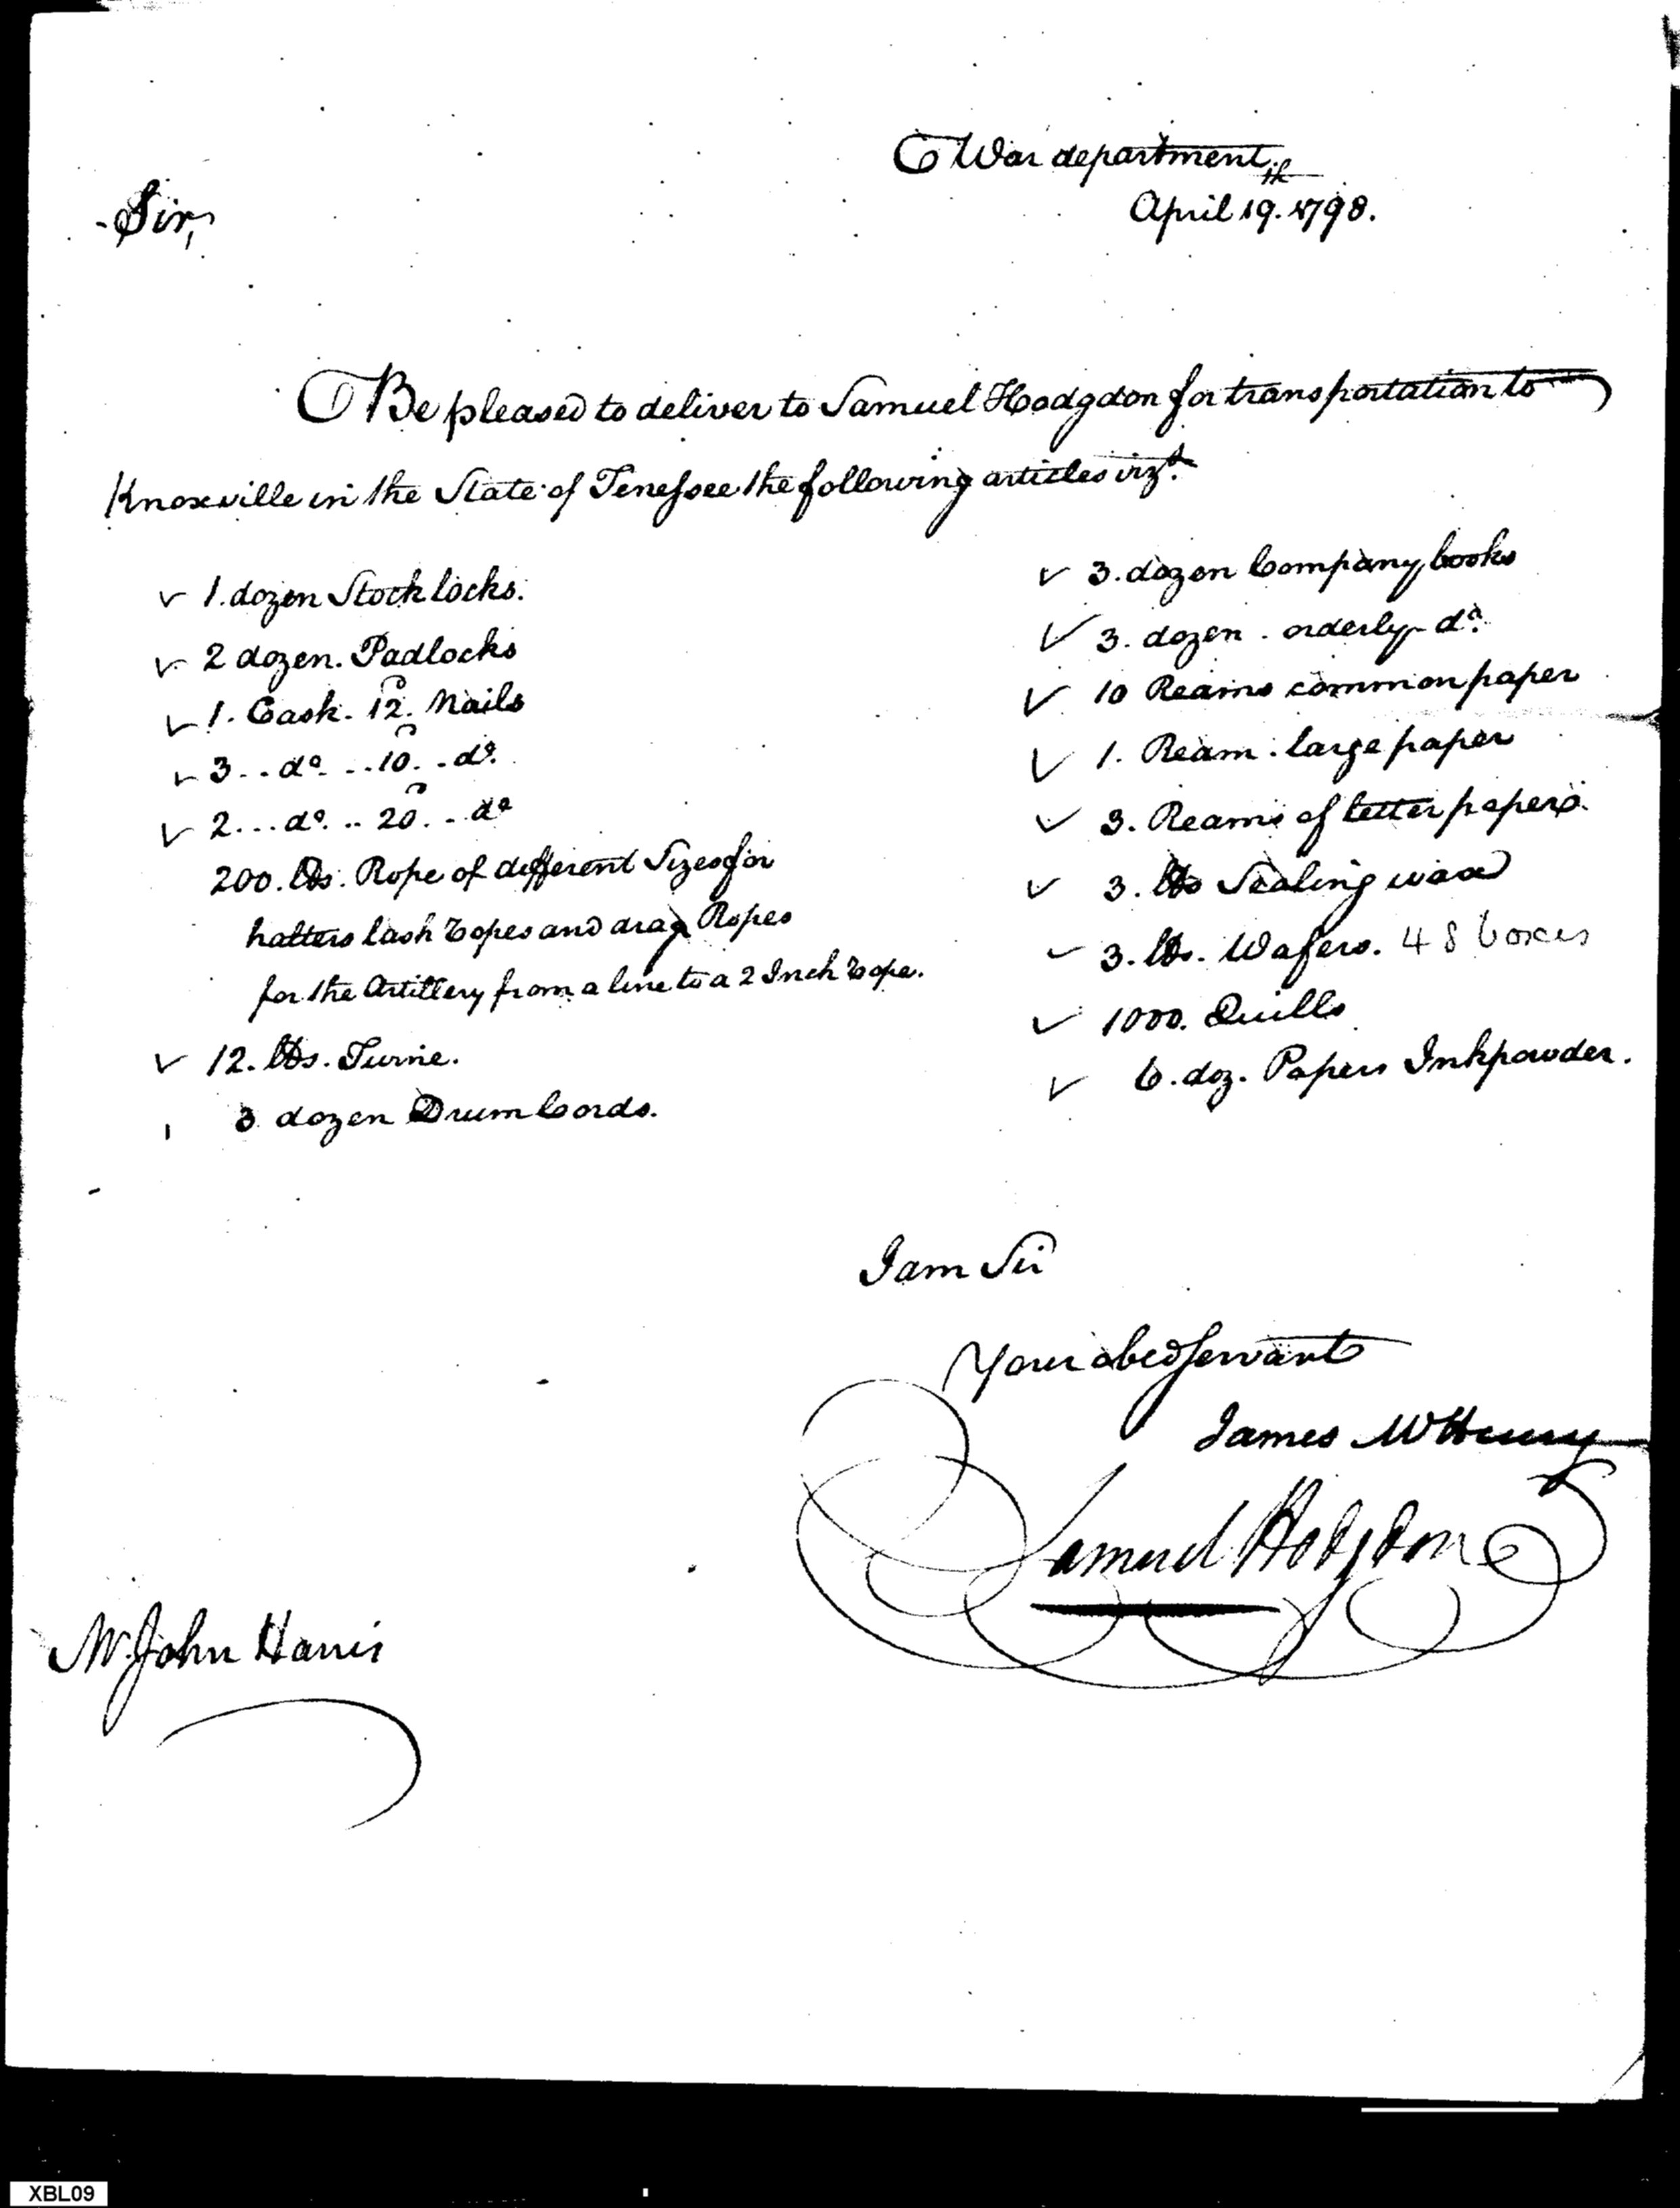 War department,
April 19.th 1798.
Sir,
Be pleased to deliver to Samuel Hodgdon for transportation to
Knoxville in the State of Tenessee the following articles vizt.
✓ 1. dozen Stock locks.
✓ 2 dozen. Padlocks
✓ 1. Cask. 12.d Nails
✓ 3 .. do. .. 10.d .. do.
✓ 2 ... do. .. 20.d .. do
200. lbs. Rope of different Sizes for
halters lash Ropes and drag Ropes
for the Artillery from a line to a 2 Inch Rope.
✓ 12. lbs. Twine.
3 dozen Drum Cords.
✓ 3. dozen Company books
✓ 3. dozen . orderly do.
✓ 10 Reams common paper
✓ 1. Ream . large paper
✓ 3. Reams of letter papers.
✓ 3. lbs Sealing wax
✓ 3. lbs. Wafers. 48 boxes
✓ 1000. Quills
✓ 6. doz. Papers Inkpowder.
I am Sir
Your obed servant
James McHenry
Samuel Hodgdon
Mr. John Harris
XBL09